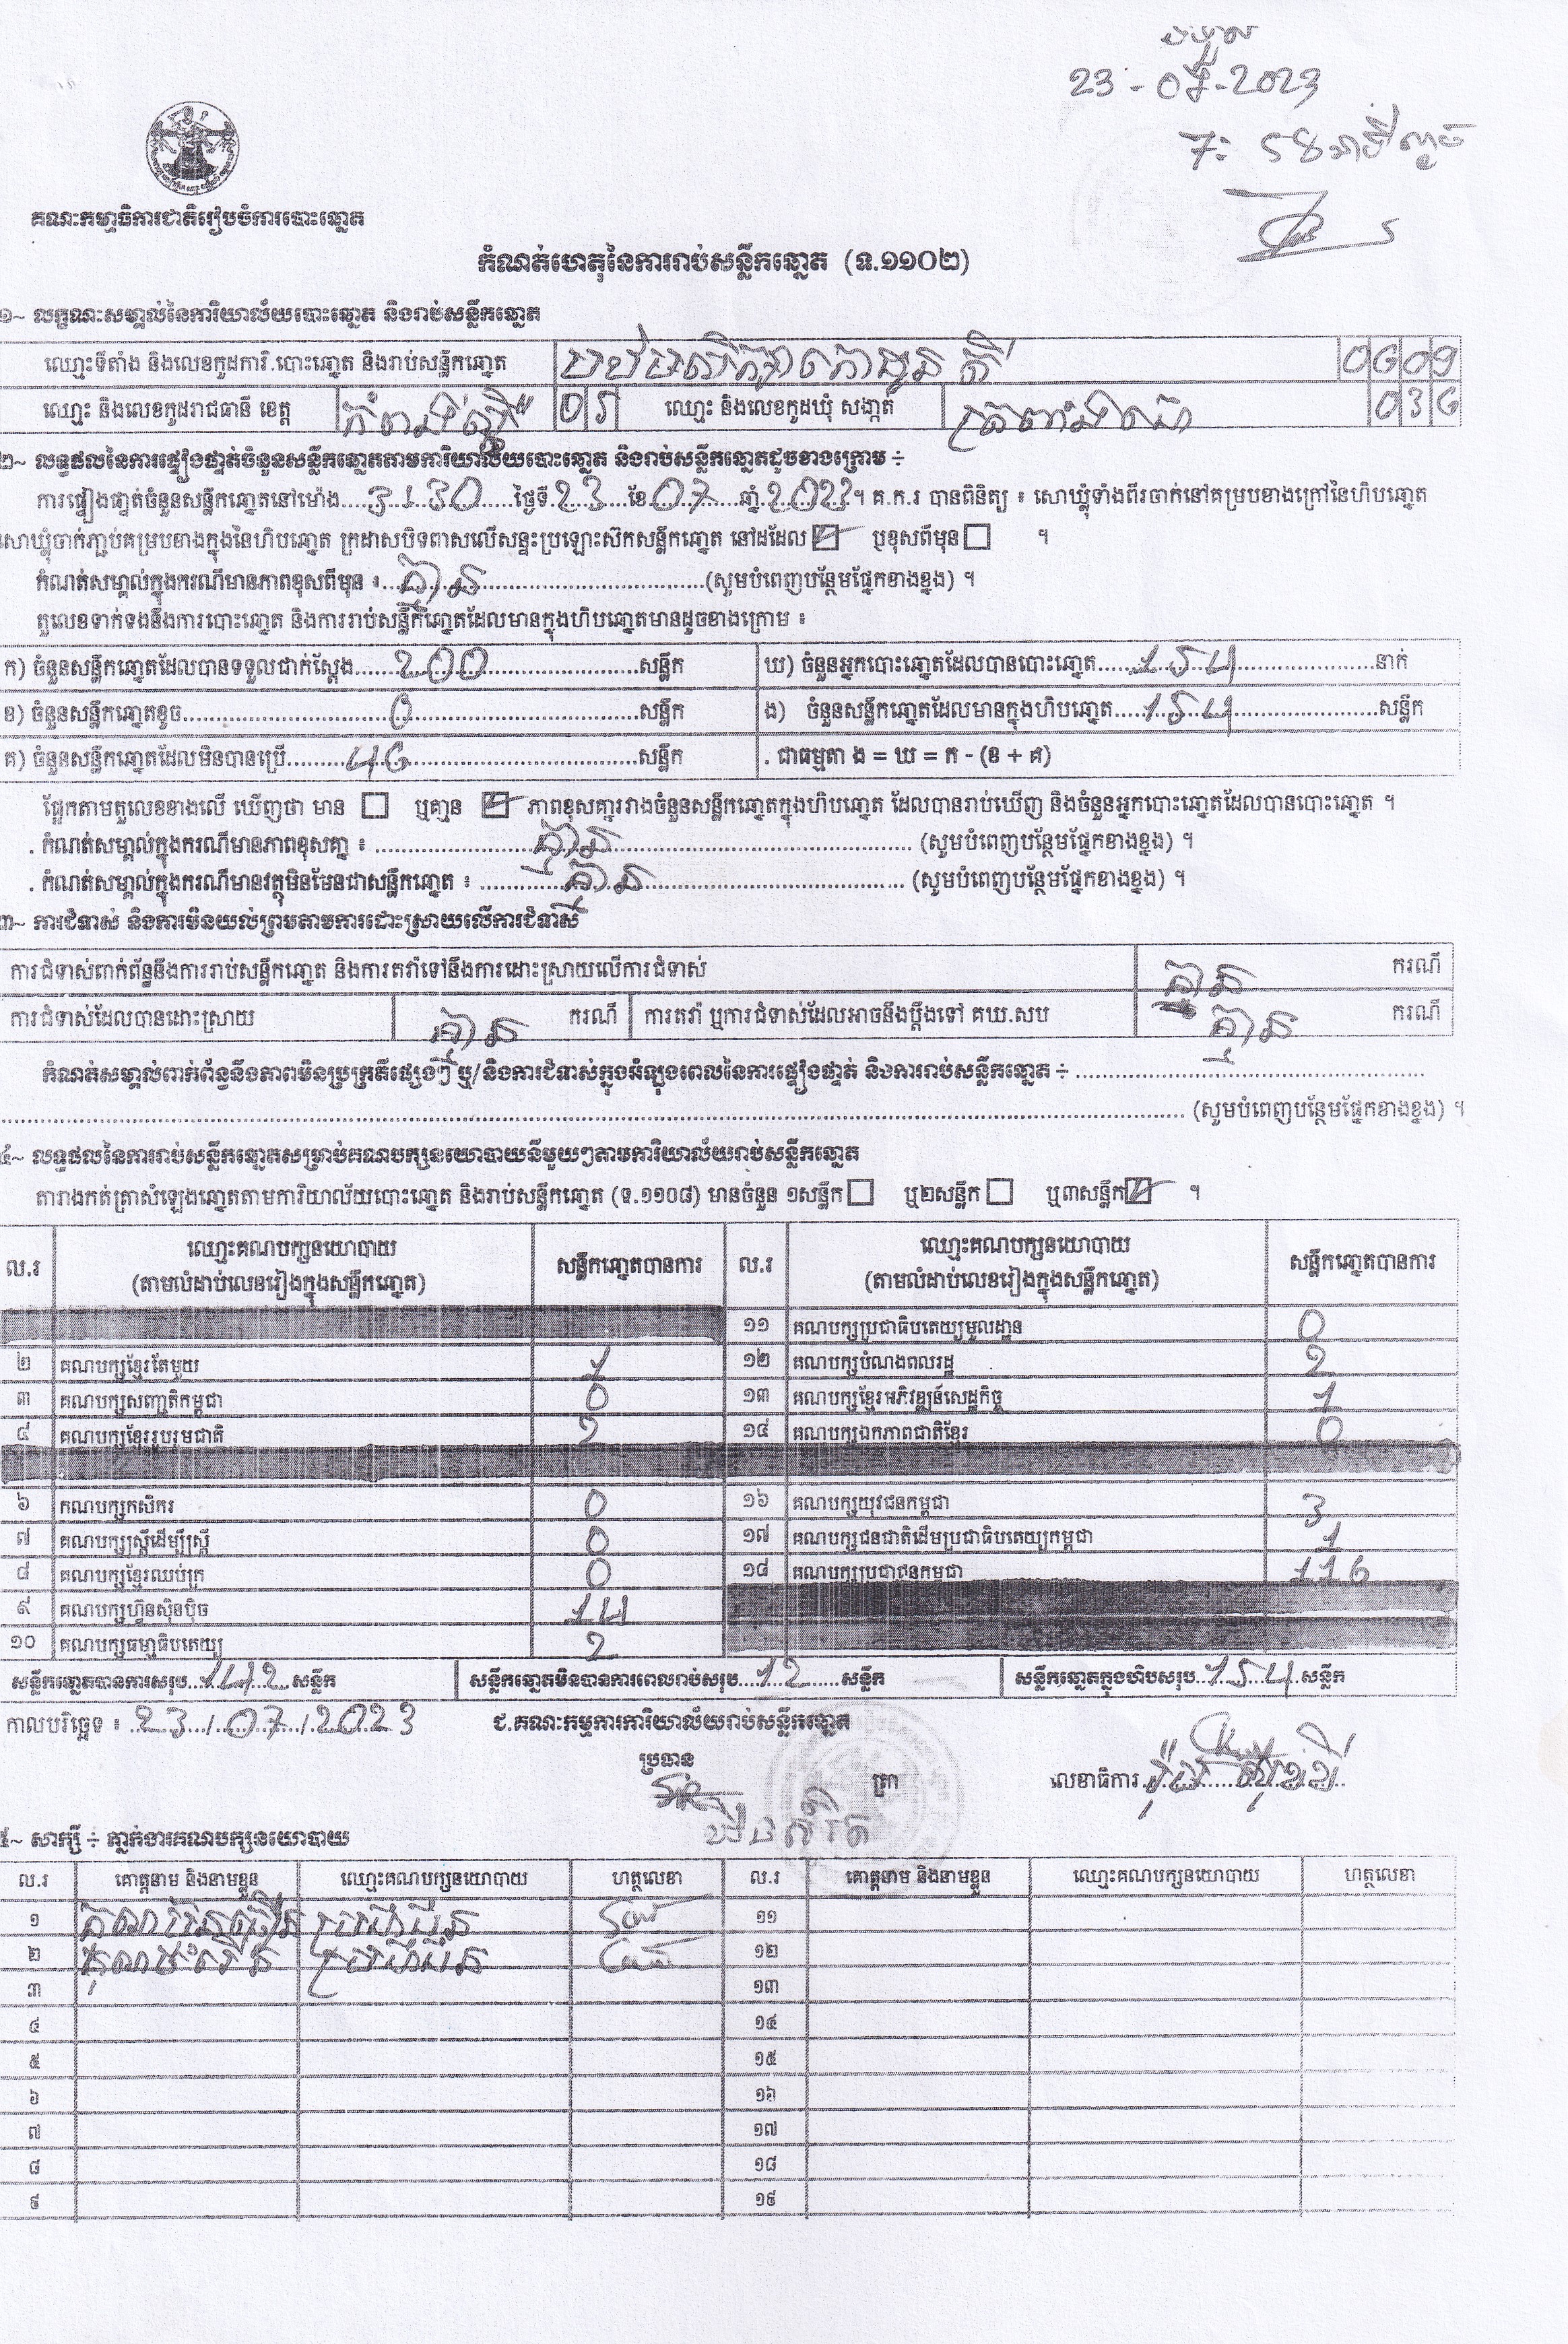 ទទួល
23-07-2023
7: 58 នាទីល្ងាច
គណៈកម្មាធិការជាតិរៀបចំការបោះឆ្នោត
កំណត់ហេតុនៃការរាប់សន្លឹកឆ្នោត (ទ.១១០២)
១~ លក្ខណៈសម្គាល់នៃការិយាល័យបោះឆ្នោត និងរាប់សន្លឹកឆ្នោត
ឈ្មោះទីតាំង និងលេខកូដការិ.បោះឆ្នោត និងរាប់សន្លឹកឆ្នោត 0609
ឈ្មោះ និងលេខកូដរាជធានី ខេត្ត កំពង់ស្ពឺ 05 ឈ្មោះ និងលេខកូដឃុំ សង្កាត់ 036
២~ លទ្ធផលនៃការផ្ទៀងផ្ទាត់ចំនួនសន្លឹកឆ្នោតតាមការិយាល័យបោះឆ្នោត និងរាប់សន្លឹកឆ្នោតដូចខាងក្រោម ÷
ការផ្ទៀងផ្ទាត់ចំនួនសន្លឹកឆ្នោតនៅម៉ោង....3:30....ថ្ងៃទី.23.ខែ.07..ឆ្នាំ.2023។ គ.ក.រ បានពិនិត្យ ៖ សោឃ្លុំទាំងពីរចាក់នៅគម្របខាងក្រៅនៃហិបឆ្នោត
សោឃ្លុំចាក់ភ្ជាប់គម្របខាងក្នុងនៃហិបឆ្នោត ក្រដាសបិទពាសលើសន្ទះប្រឡោះស៊កសន្លឹកឆ្នោត នៅដដែល ☑ ឬខុសពីមុន ☐ ។
កំណត់សម្គាល់ក្នុងករណីមានភាពខុសពីមុន ៖..គ្មាន..............(សូមបំពេញបន្ថែមផ្នែកខាងខ្នង) ។
តួលេខទាក់ទងនឹងការបោះឆ្នោត និងការរាប់សន្លឹកឆ្នោតដែលមានក្នុងហិបឆ្នោតមានដូចខាងក្រោម ៖
ក) ចំនួនសន្លឹកឆ្នោតដែលបានទទួលជាក់ស្តែង......200..........សន្លឹក ឃ) ចំនួនអ្នកបោះឆ្នោតដែលបានបោះឆ្នោត.....154..........នាក់
ខ) ចំនួនសន្លឹកឆ្នោតខូច..........0..........សន្លឹក ង) ចំនួនសន្លឹកឆ្នោតដែលមានក្នុងហិបឆ្នោត.....154..........សន្លឹក
គ) ចំនួនសន្លឹកឆ្នោតដែលមិនបានប្រើ......46..........សន្លឹក . ជាធម្មតា ង = ឃ = ក - (ខ + គ)
ផ្អែកតាមតួលេខខាងលើ ឃើញថា មាន ☐ ឬគ្មាន ☑ ភាពខុសគ្នារវាងចំនួនសន្លឹកឆ្នោតក្នុងហិបឆ្នោត ដែលបានរាប់ឃើញ និងចំនួនអ្នកបោះឆ្នោតដែលបានបោះឆ្នោត ។
. កំណត់សម្គាល់ក្នុងករណីមានភាពខុសគ្នា ៖ ..........គ្មាន.............. (សូមបំពេញបន្ថែមផ្នែកខាងខ្នង) ។
. កំណត់សម្គាល់ក្នុងករណីមានវត្ថុមិនមែនជាសន្លឹកឆ្នោត ៖ ........គ្មាន.............. (សូមបំពេញបន្ថែមផ្នែកខាងខ្នង) ។
៣~ ការជំទាស់ និងការមិនយល់ព្រមតាមការដោះស្រាយលើការជំទាស់
ការជំទាស់ពាក់ព័ន្ធនឹងការរាប់សន្លឹកឆ្នោត និងការតវ៉ាទៅនឹងការដោះស្រាយលើការជំទាស់ គ្មាន ករណី
ការជំទាស់ដែលបានដោះស្រាយ គ្មាន ករណី ការតវ៉ា ឬការជំទាស់ដែលអាចនឹងប្តឹងទៅ គឃ.សប គ្មាន ករណី
កំណត់សម្គាល់ពាក់ព័ន្ធនឹងភាពមិនប្រក្រតីផ្សេងៗ ឬ/និងការជំទាស់ក្នុងអំឡុងពេលនៃការផ្ទៀងផ្ទាត់ និងការរាប់សន្លឹកឆ្នោត ÷ ....................
.................... (សូមបំពេញបន្ថែមផ្នែកខាងខ្នង) ។
៤~ លទ្ធផលនៃការរាប់សន្លឹកឆ្នោតសម្រាប់គណបក្សនយោបាយនីមួយៗតាមការិយាល័យរាប់សន្លឹកឆ្នោត
តារាងកត់ត្រាសំឡេងឆ្នោតតាមការិយាល័យបោះឆ្នោត និងរាប់សន្លឹកឆ្នោត (ទ.១១០៨) មានចំនួន ១សន្លឹក ☐ ឬ២សន្លឹក ☐ ឬ៣សន្លឹក ☑ ។
ល.រ ឈ្មោះគណបក្សនយោបាយ (តាមលំដាប់លេខរៀងក្នុងសន្លឹកឆ្នោត) សន្លឹកឆ្នោតបានការ ល.រ ឈ្មោះគណបក្សនយោបាយ (តាមលំដាប់លេខរៀងក្នុងសន្លឹកឆ្នោត) សន្លឹកឆ្នោតបានការ
១១ គណបក្សប្រជាធិបតេយ្យមូលដ្ឋាន 0
២ គណបក្សខ្មែរតែមួយ 1 ១២ គណបក្សបំណងពលរដ្ឋ 2
៣ គណបក្សសញ្ជាតិកម្ពុជា 0 ១៣ គណបក្សខ្មែរអភិវឌ្ឍន៍សេដ្ឋកិច្ច 1
៤ គណបក្សខ្មែររួបរួមជាតិ 2 ១៤ គណបក្សឯកភាពជាតិខ្មែរ 0
៦ គណបក្សកសិករ 0 ១៦ គណបក្សយុវជនកម្ពុជា 3
៧ គណបក្សស្ត្រីដើម្បីស្ត្រី 0 ១៧ គណបក្សជនជាតិដើមប្រជាធិបតេយ្យកម្ពុជា 1
៨ គណបក្សខ្មែរឈប់ក្រ 0 ១៨ គណបក្សប្រជាជនកម្ពុជា 116
៩ គណបក្សហ៊្វុនស៊ិនប៉ិច 14
១០ គណបក្សធម្មាធិបតេយ្យ 2
សន្លឹកឆ្នោតបានការសរុប..142..សន្លឹក សន្លឹកឆ្នោតមិនបានការពេលរាប់សរុប..12......សន្លឹក សន្លឹកឆ្នោតក្នុងហិបសរុប..154.សន្លឹក
កាលបរិច្ឆេទ ៖ .23./.07../.2023 ជ.គណៈកម្មការការិយាល័យរាប់សន្លឹកឆ្នោត
ប្រធាន ត្រា លេខាធិការ
៥~ សាក្សី ÷ ភ្នាក់ងារគណបក្សនយោបាយ
ល.រ គោត្តនាម និងនាមខ្លួន ឈ្មោះគណបក្សនយោបាយ ហត្ថលេខា ល.រ គោត្តនាម និងនាមខ្លួន ឈ្មោះគណបក្សនយោបាយ ហត្ថលេខា
១ ១១
២ ១២
៣ ១៣
៤ ១៤
៥ ១៥
៦ ១៦
៧ ១៧
៨ ១៨
៩ ១៩